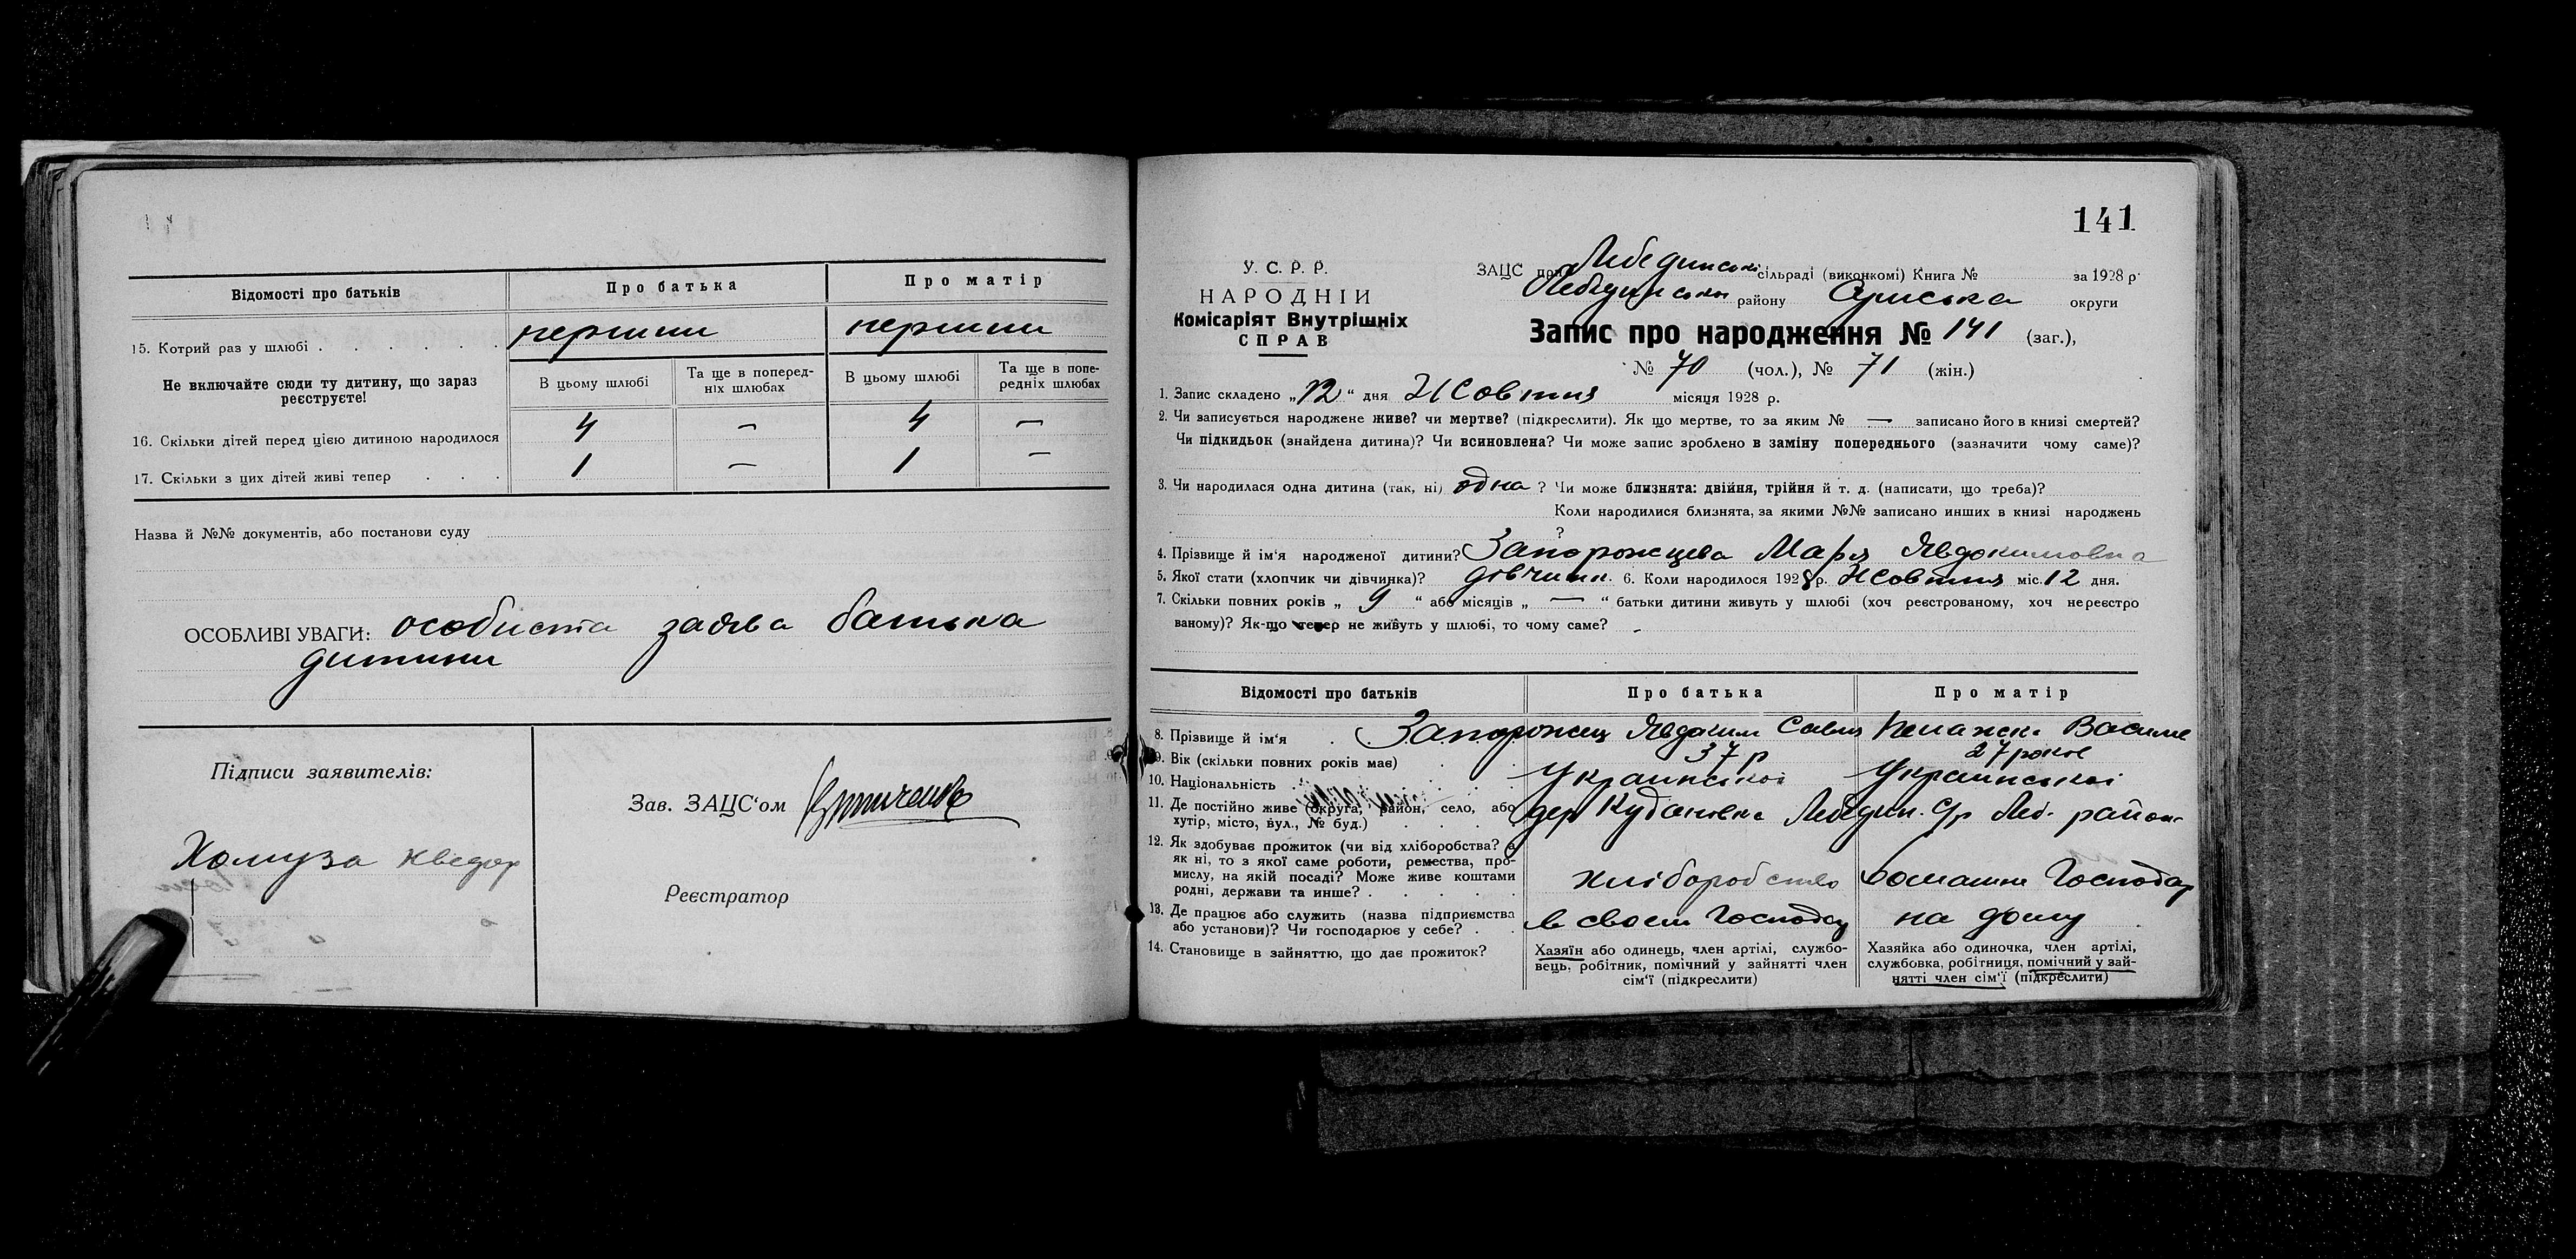 Відомості про батьків Про батька Про матір
15. Котрий раз у шлюбі . . . . . . . первши первши
Не включайте сюди ту дитину, що зараз реєструєте!
В цьому шлюбі Та ще в поперед-
ніх шлюбах В цьому шлюбі Та ще в попе-
редніх шлюбах
16. Скільки дітей перед цією дитиною народилося 4 — 4 —
17. Скільки з цих дітей живі тепер . . . 1 — 1 —
Назва й №№ документів, або постанови суду
ОСОБЛИВІ УВАГИ: особиста заява батька
дитини
Підписи заявителів:
Зав. ЗАЦС'ом
Хомуза
Реєстратор
141
У. С. Р. Р.
НАРОДНІЙ
Комісаріят Внутрішніх
СПРАВ
ЗАЦС при Лебединські сільраді (виконкомі) Книга № за 1928 р.
Лебединськи району Сумська округи
Запис про народження № 141 (заг.),
№ 70 (чол.), № 71 (жін.)
1. Запис складено „12“ дня Жовтня місяця 1928 р.
2. Чи записується народжене живе? чи мертве? (підкреслити). Як що мертве, то за яким № — записано його в книзі смертей?
Чи підкидьок (знайдена дитина)? Чи всиновлена? Чи може запис зроблено в заміну попереднього (зазначити чому саме)?
3. Чи народилася одна дитина (так, ні) одна ? Чи може близнята: двійня, трійня й т. д. (написати, що треба)?
Коли народилися близнята, за якими №№ записано инших в книзі народжень
?
4. Прізвище й ім'я народженої дитини? Запорожцева Марія Явдокимовна
5. Якої стати (хлопчик чи дівчинка)? дівчинк. 6. Коли народилося 1928 р. Жовтня міс. 12 дня.
7. Скільки повних років „ 9 “ або місяців „ — “ батьки дитини живуть у шлюбі (хоч реєстрованому, хоч нереєстро
ваному)? Як-що тепер не живуть у шлюбі, то чому саме? -
Відомості про батьків Про батька Про матір
8. Прізвище й ім'я . . Запорожец Явдоким Савич Василе
9. Вік (скільки повних років має) . . 37 р 27 років
10. Національність . . . . Украинської Украинської
11. Де постійно живе (округа, район, село, або
хутір, місто, вул., № буд.) . . . . дер Лебедин. С/р Леб. район
12. Як здобуває прожиток (чи від хліборобства? а
як ні, то з якої саме роботи, ремества, про-
мислу, на якій посаді? Може живе коштами
родні, держави та инше? . . . . . хліборобство домашни Господар
13. Де працює або служить (назва підприємства
або установи)? Чи господарює у себе? . . в своем Господар на дому
14. Становище в зайняттю, що дає прожиток?
Хазяїн або одинець, член артілі, службо-
вець, робітник, помічний у зайнятті член
сім'ї (підкреслити)
Хазяйка або одиночка, член артілі,
службовка, робітниця, помічний у зай-
нятті член сім'ї (підкреслити)